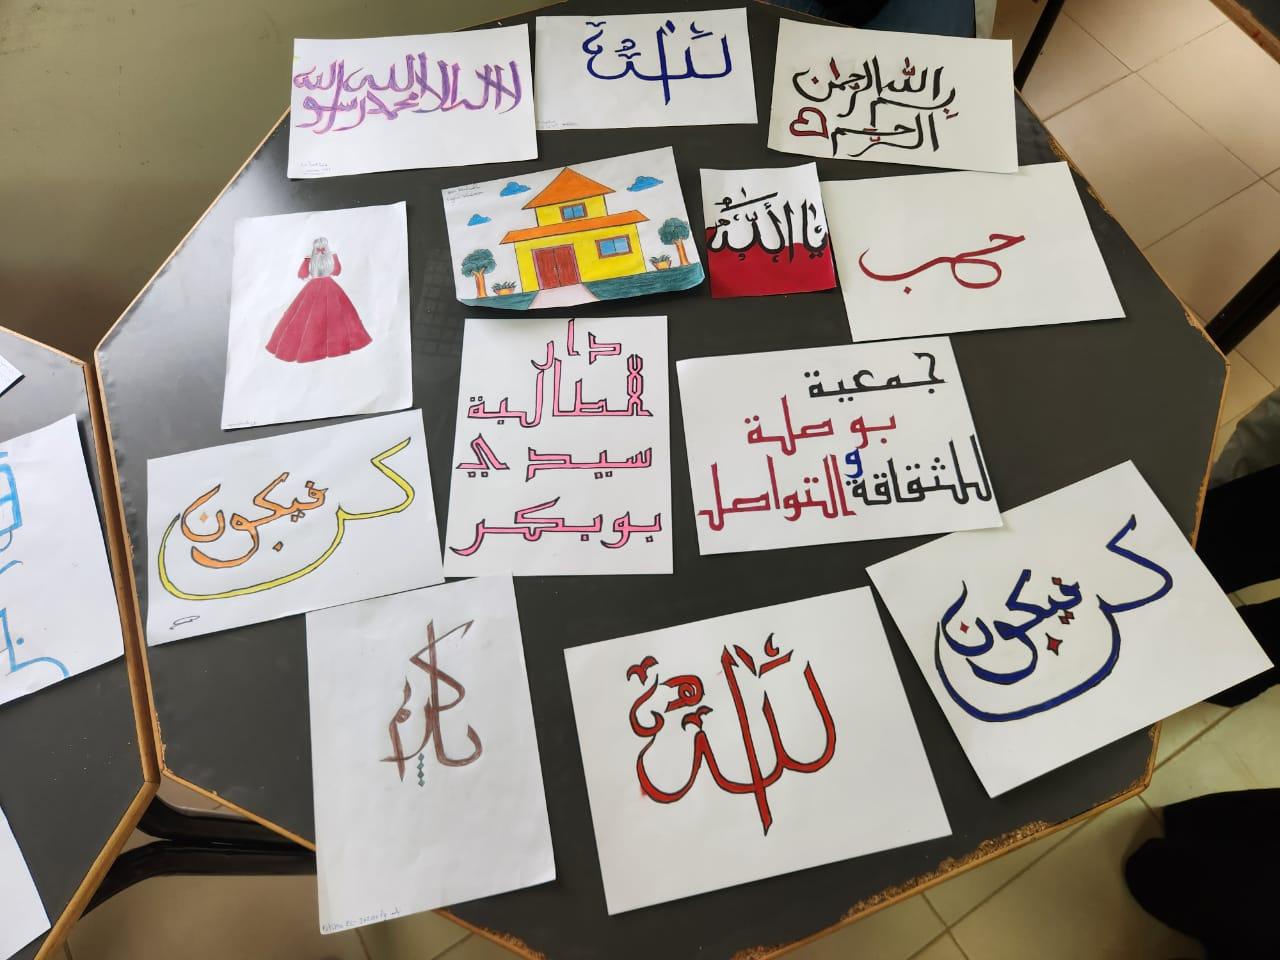 لا اله الا الله
محمد رسول الله
لله
بسم الله الرحمان
الرحيم
يا الله
حب
دار
الطالبة
سيدي
بوبكر
جمعية
بوصلة
للثقافة و التواصل
كن فيكون
كن فيكون
يا كريم
لله